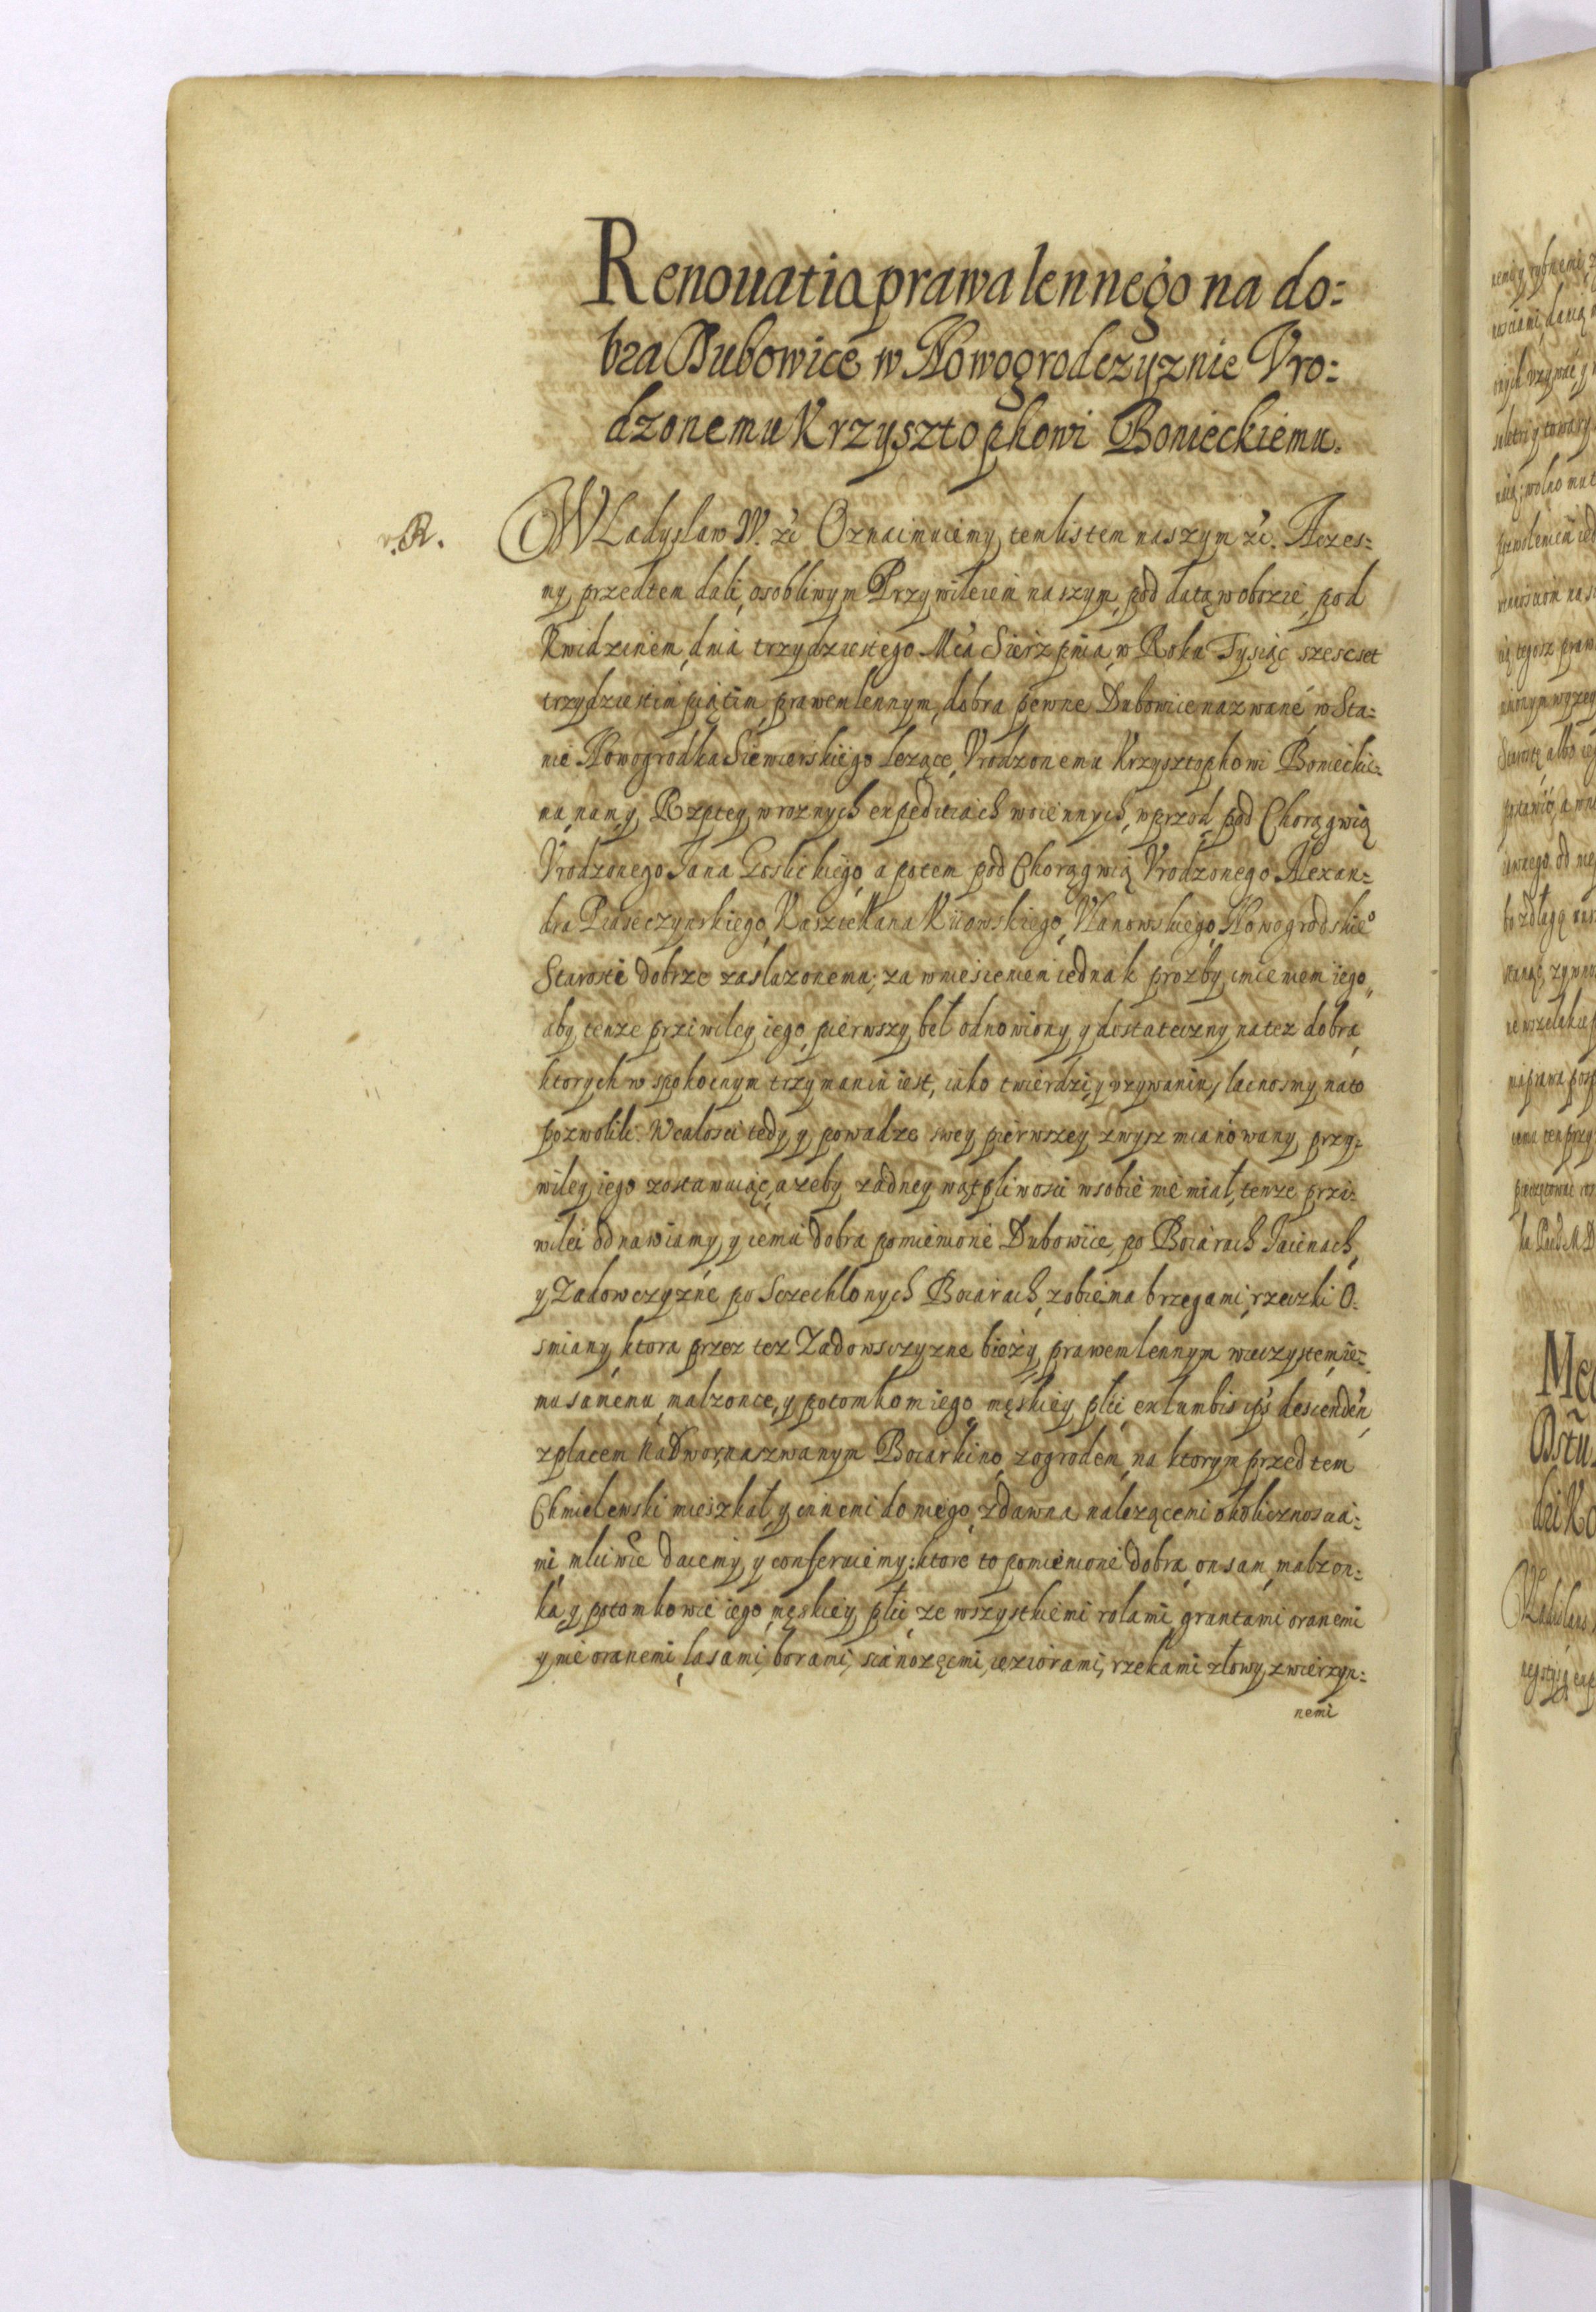 Renouatia prawa lennego na do:
bra Dubowice w Nowogrodczyznie Vro:
dzonemu Krzysztophowi Bonieckiemu.
.R.
WLadyslaw IV. &c Oznaimuiemy tem listem naszym &c. Aczes:
my przedtem dali, osobliwym Przywileiem naszym, pod datą w obozie, pod
Kwidzinem, dnia trzydziestego Mca Sierzpnia, w Roku Tysiąc szescset
trzydziestim piątim, prawem lennym, dobra pewne Dubowice nazwane, w Sta:
nie Nowogrodka Siewierskiego lezące, Vrodzonemu Krzysztophowi Bonieckie:
nam, y Rzptey, w roznych expediciach woiennych, wprzod, pod Chorągwią
Vrodzonego Jana Goslickiego, a potem pod Chorągwią Vrodzonego Alexan:
dra Piaseczynskiego, Kasztellana Kiiowskiego, Vlanowskiego, Nowogrodskieo
Starosti dobrze zasluzonemu; za wniesieniem iednak prozby, imieniem iego,
aby tenze prziwiley iego, pierwszy, beł odnowiony, y dostateczny na tez dobra,
ktorych w spokoinym trzymaniu iest, iako twierdzi, y vzywaniu, lacnosmy na to
pozwolili. W calosci tedy, y powadze swey pierwszey zwysz mianowany, przy:
wiley, iego zostawuiąc, a zeby zadney wątpliwosci w sobie nie miał, tenze przi:
wilei odnawiamy, y iemu dobra pomienione Dubowiice, po Boiarach Jacinach,
y Zadowczyzne po Sczechlonych Boiarach, z obiema brzegami, rzeczki O:
smiany, ktora przez tez Zadowsczyzne bieży, prawem lennym wieczystem, ie:
mu samemu, malzonce, y potomkom iego męskiey płci, ex lumbis ips descenden,
z placem na Dwor, naszwanym Boiarkino, z ogrodem, na ktorym przed tem
Chmielewski mieszkał, y innemi do niego, zdawna nalezącemi okolicznoscia:
mi, mliwie daiemy, y conferuiemy: ktore to pomienione dobra, on sam, malzon:
ka, y potomkowie iego, męskiey płci, ze wszystkiemi rolami, gruntami oranemi
y nie oranemi, lasami, borami, sianozęcmi, ieziorami, rzekami złowy, zwierzyn:
nemi